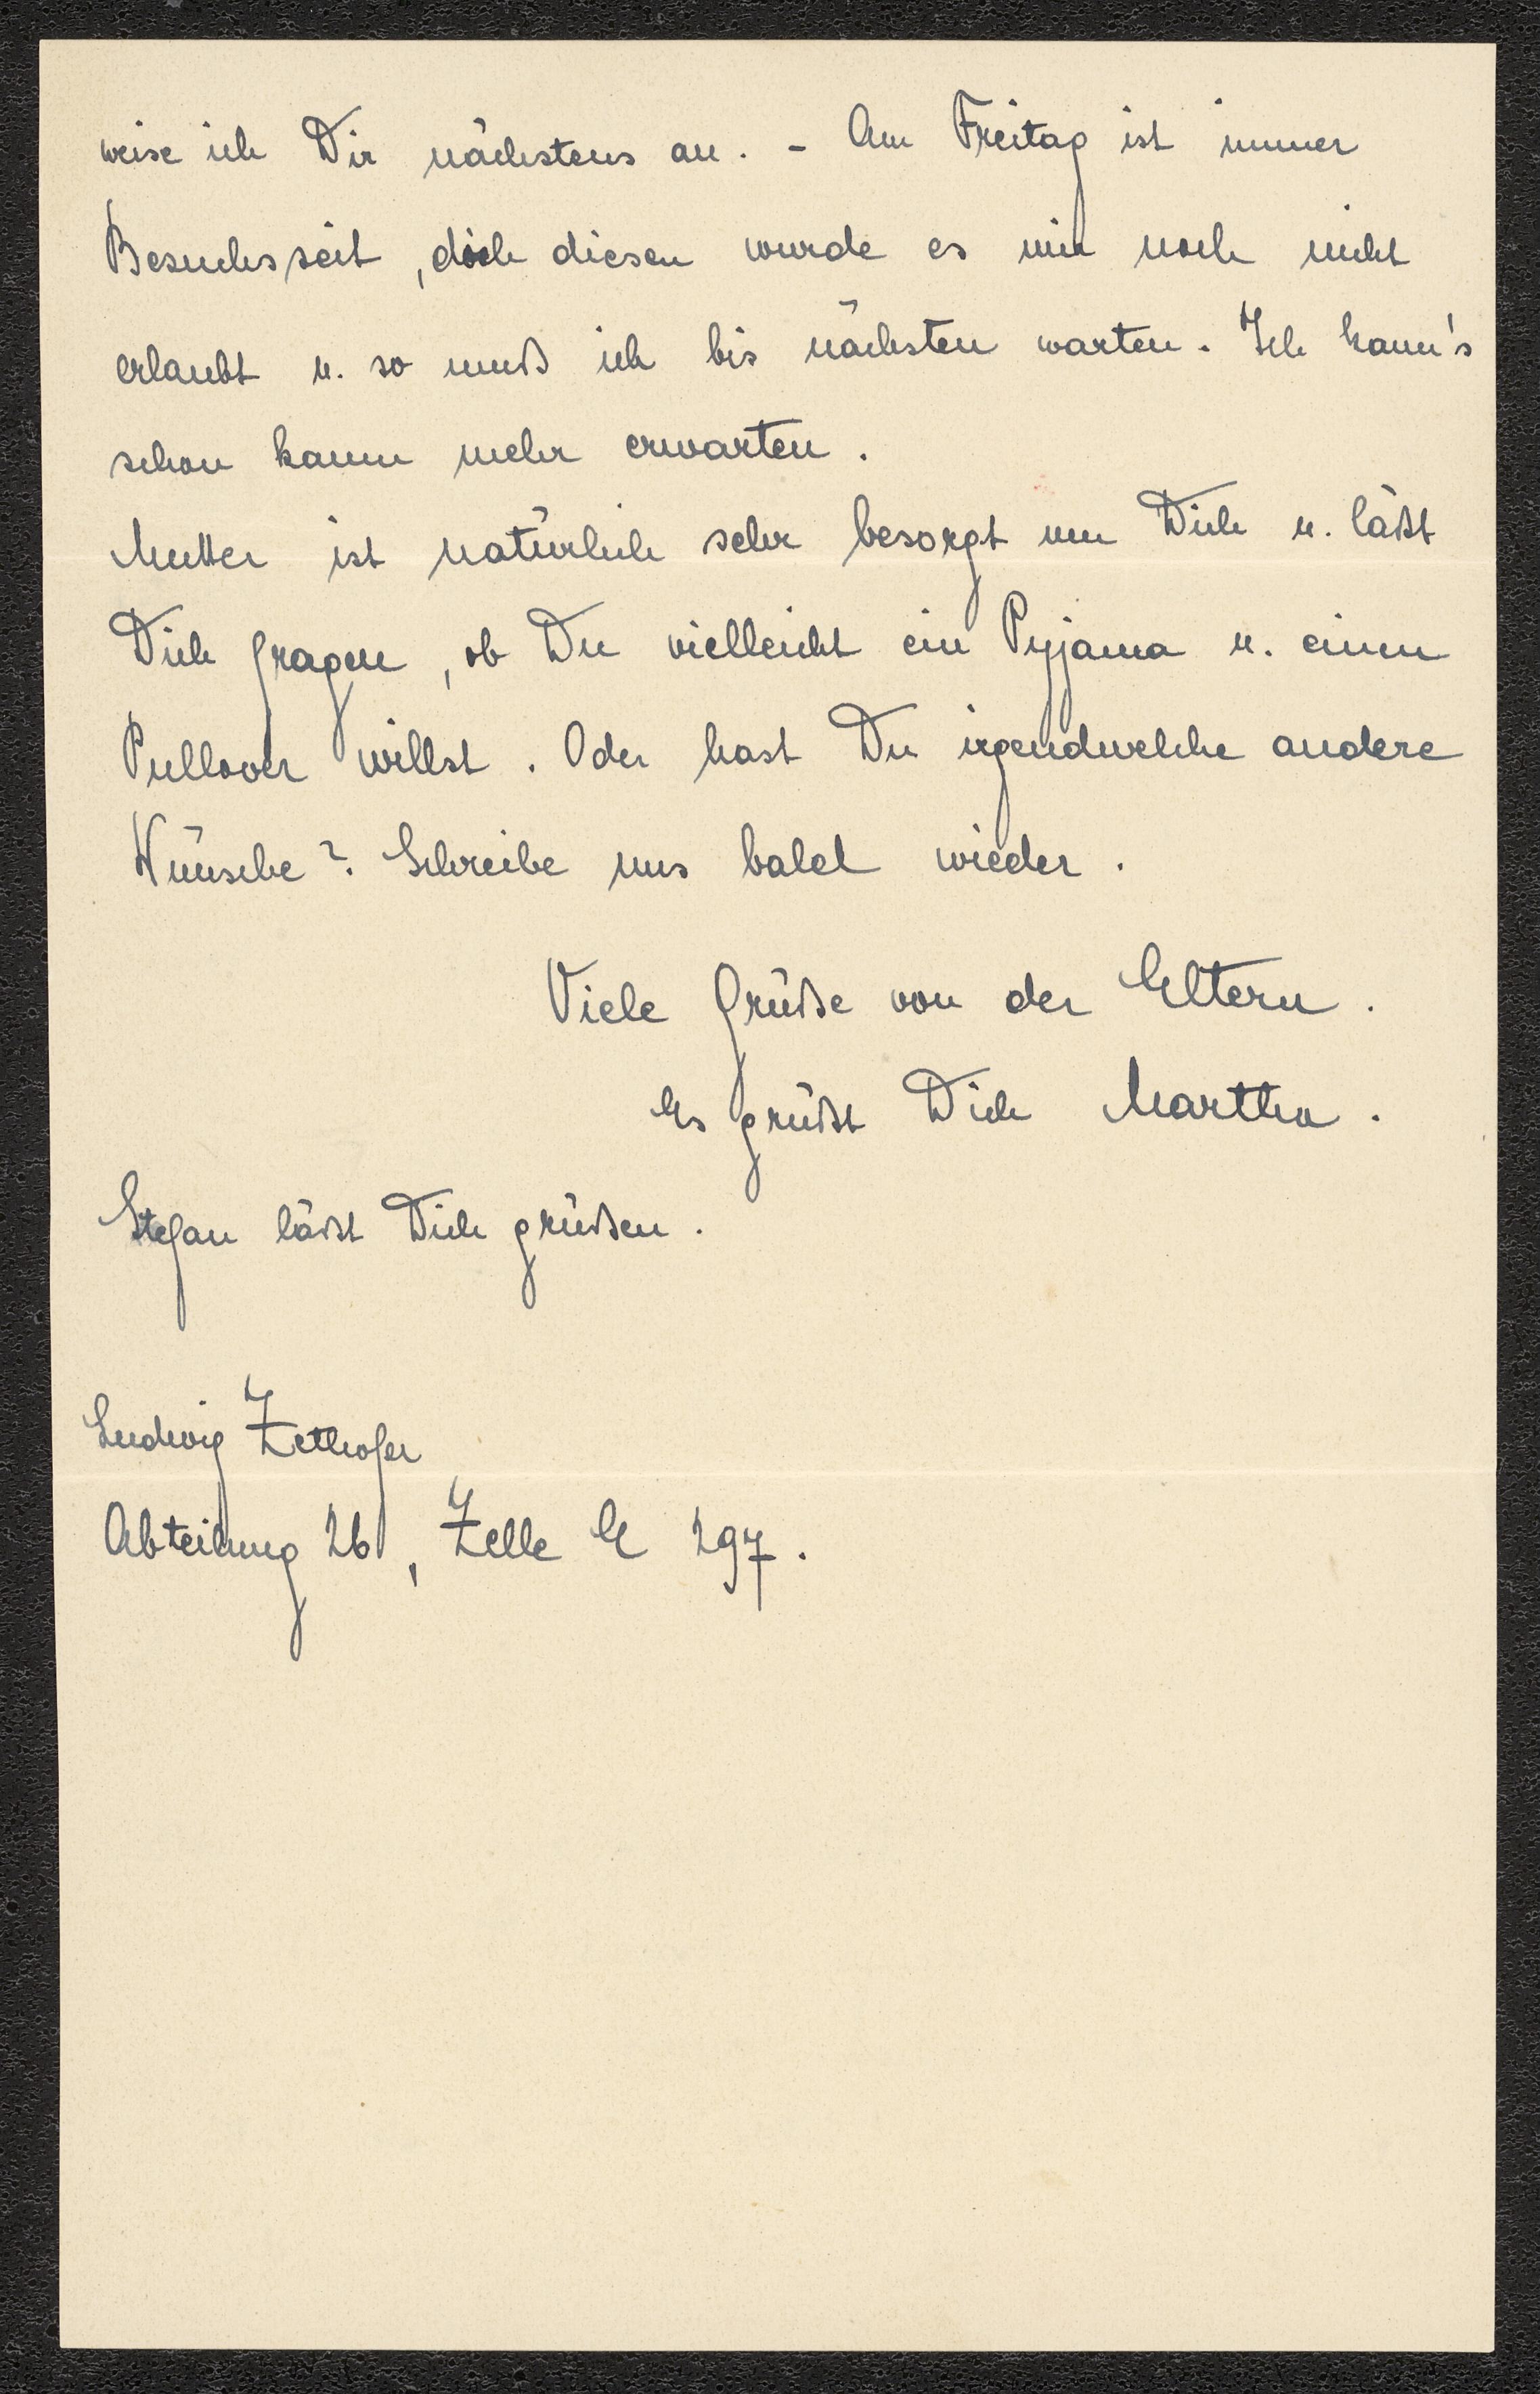 weise ich Dir nächstens an. - Am Freitag ist immer
Besuchszeit, doch diesen wurde es mir noch nicht
erlaubt u. so muß ich bis nächsten warten. Ich kann's
schon kaum mehr erwarten.
Mutter ist natürlich sehr besorgt um Dich u. läßt
Dich fragen, ob Du vielleicht ein Pyjama u. einen
Pullover willst. Oder hast Du irgendwelche andere
Wünsche? Schreibe uns bald wieder.
Viele Grüße von der Eltern.
Es grüßt Dich Martha.
Stefan läßt Dich grüßen.
Ludwig Zethofer
Abteilung 2b, Zelle E 297.